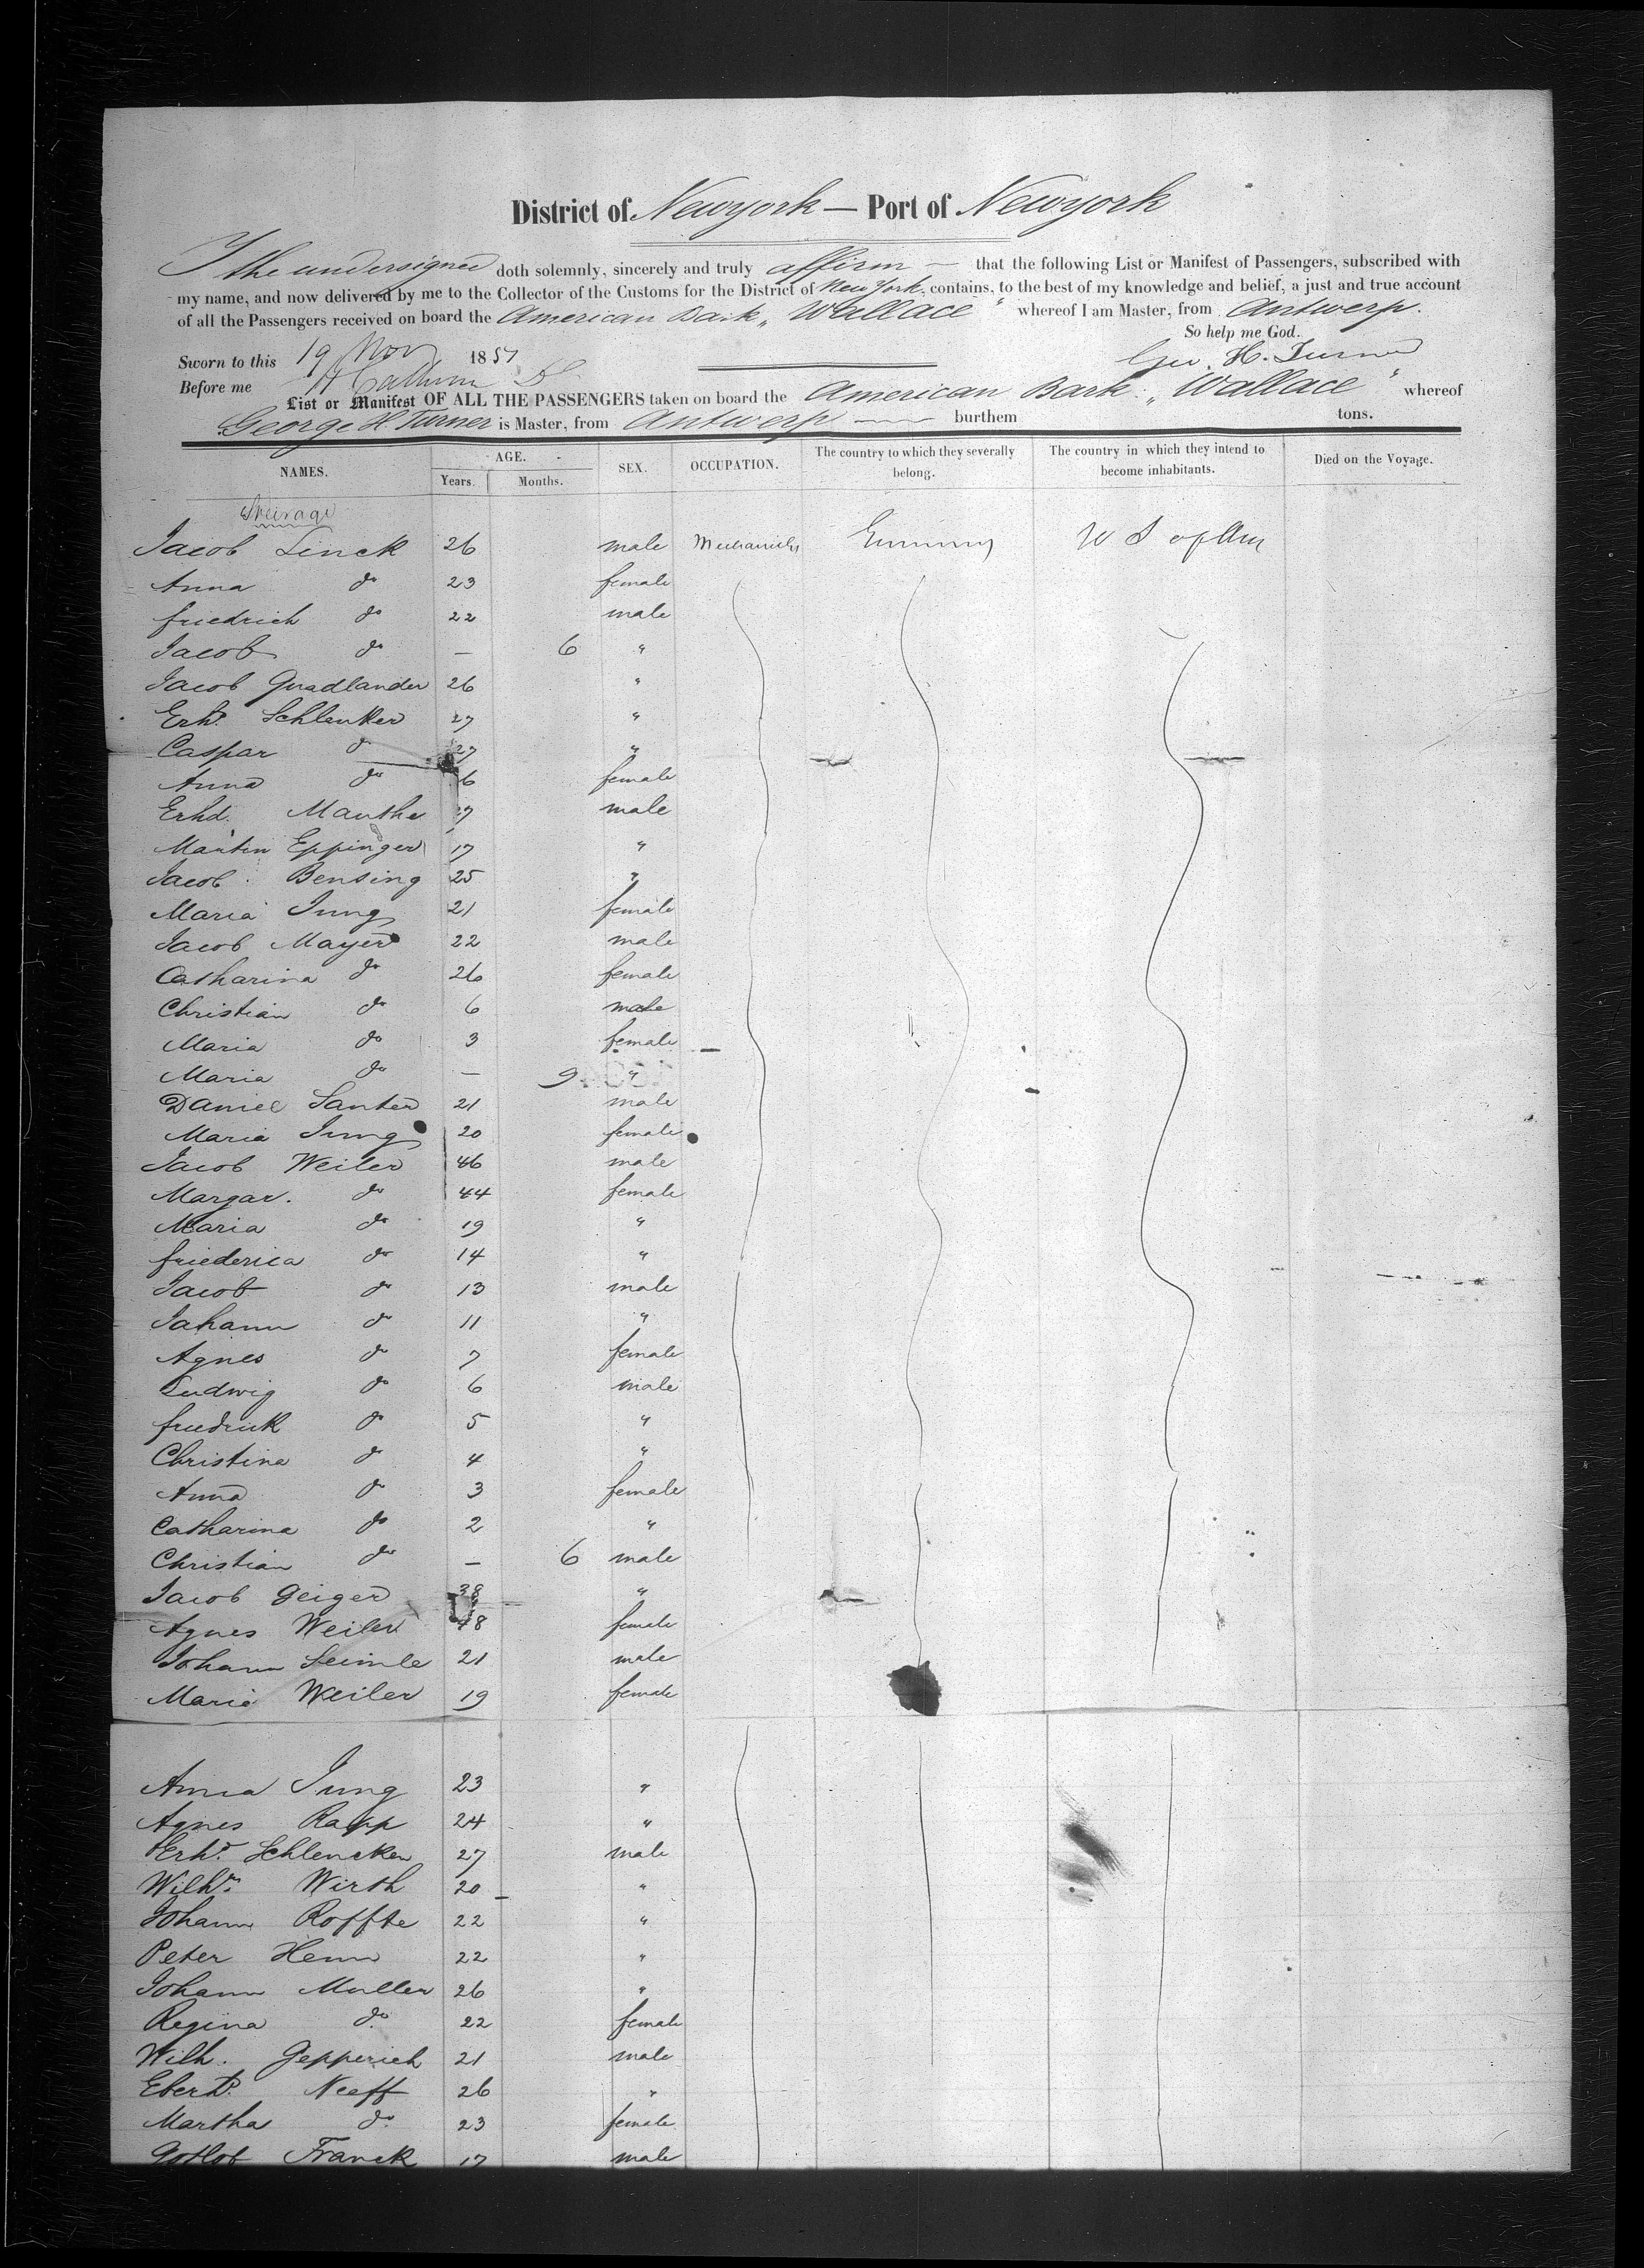 District of Newyork — Port of Newyork
I the undersigned doth solemnly, sincerely and truly affirm — that the following List or Manifest of Passengers, subscribed with
my name, and now delivered by me to the Collector of the Customs for the District of New York, contains, to the best of my knowledge and belief, a just and true account
of all the Passengers received on board the American Bark „ Wallace " whereof I am Master, from Antwerp.
So help me God.
Sworn to this 19 Nov 185 Geo. H. Turner
Before me
List or Manifest OF ALL THE PASSENGERS taken on board the American Bark „ Wallace " whereof
George H Turner is Master, from Antwerp — burthem tons.
NAMES. AGE. SEX. OCCUPATION. The country to which they severally belong. The country in which they intend to become inhabitants. Died on the Voyage.
Years. Months.
Steerage
Jacob Linck 26 male Mechanicks Germany U S of Am
Anna do 23 female
friedrich do 22 male
Jacob do — 6 "
Jacob Quadlander 26 "
Erhd. Schlenker 27 "
Caspar do 27 "
Anna do 6 female
Erhd. Mauthe 27 male
Martin Eppinger 17 "
Jacob Bensing 25 "
Maria Jung 21 female
Jacob Mayer 22 male
Catharina do 26 female
Christian do 6 male
Maria do 3 female
Maria do — 9 "
Daniel Santer 21 male
Maria Jung 20 female
Jacob Weiler 46 male
Margar. do 44 female
Maria do 19 "
friederica do 14 "
Jacob do 13 male
Johann do 11 "
Agnes do 7 female
Ludwig do 6 male
friedrick do 5 "
Christina do 4 "
Anna do 3 female
Catharina do 2 "
Christian do — 6 male
Jacob Geiger 38 "
Agnes Weiler 48 female
Johann Leimle 21 male
Maria Weiler 19 female
Anna Jung 23 "
Agnes Rapp 24 "
Erhd. Schlencker 27 male
Wilhm. Wirth 20 "
Johann Roffte 22 "
Peter Henn 22 "
Johann Muller 26 "
Regina do. 22 female
Wilh. Gepperich 21 male
Eberhd. Neeff 26 "
Martha do. 23 female
Gotlob Franck 17 male